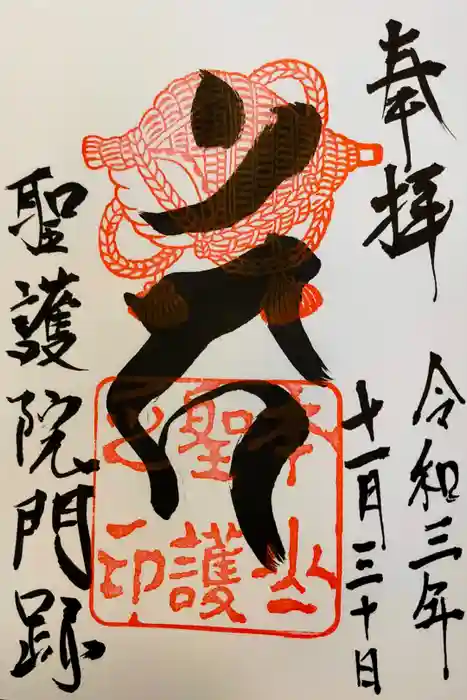 奉拝
令和三年
十一月三十日
本山
聖護
之印
聖護院門跡